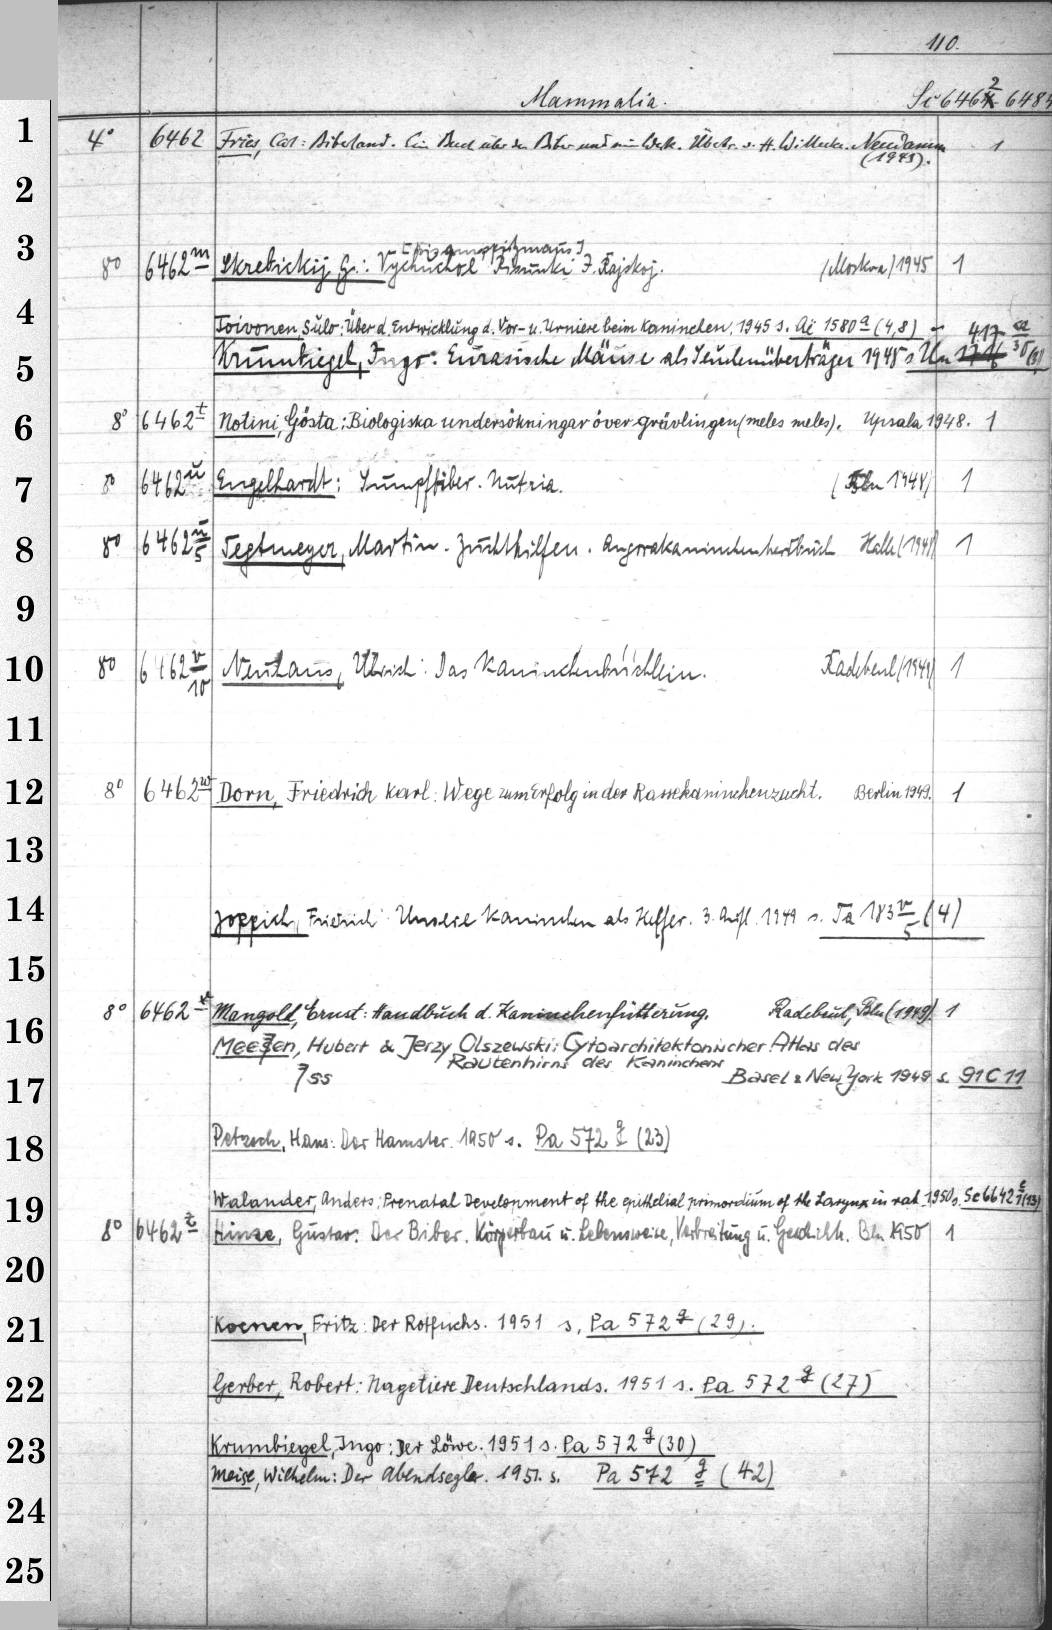 110.
Mammalia. Sc 6462 - 6484
1
4° 6462 Fries, Carl: Biberland. Ein Buch über den Biber und sein Werk. Übertr. v. H. Willecke. Neudamm 1
(1943).
2
3
[Bisamspitzmaus]
8° 6462 m Skrebickij, G.: Vychuchol (Moskva) 1945 1
4
Toivonen, Sulo: Über d. Entwicklung d. Vor- u. Urniere beim Kaninchen, 1945 s. Aë 1580 a (4,8)
5
Krumbiegel, Ingo: Eurasische Mäuse als Seuchenüberträger 1948 s. Un
6 8° 6462 t Notini, Gösta: Biologiska undersökningar över grävlingen (meles meles). Upsala 1948. 1
7 8° 6462 u Engelhardt: Sumpfbiber. Nutria. (Bln 1948) 1
8 8° 6462 u/5 Tegtmeyer, Martin. Zuchthilfen. Angorakaninchenherdbuch Halle (1948) 1
9
10 8° 6462 v/10 Neuhaus, Ulrich: Das Kaninchenbüchlein. Radebeul (1949) 1
11
12 8° 6462 w Dorn, Friedrich Karl: Wege zum Erfolg in der Rassekaninchenzucht. Berlin 1949. 1
13
14 Joppich, Friedrich: Unsere Kaninchen als Helfer. 3. Aufl. 1949 s. Ta 183 v/5 (4)
15
8° 6462 x Mangold, Ernst: Handbuch d. Kaninchenfütterung. Radebeul, Bln (1949). 1
16
Meesen, Hubert & Jerzy Olszewski: Cytoarchitektonischer Atlas des
Rautenhirns des Kaninchens
17 ss Basel & New York 1949 s. 91 C 11
18 Petzsch, Hans: Der Hamster. 1950 s. Pa 572 g (23)
19 Walander, Anders: Prenatal Development of the epithelial primordium of the Larynx in rat 1950 s. Sc 6642 c/1 (13)
8° 6462 z Hinze, Gustav: Der Biber. Körperbau u. Lebensweise, Verbreitung u. Geschichte. Bln 1950 1
20
21 Koenen, Fritz: Der Rotfuchs. 1951 s. Pa 572 g (29).
22 Gerber, Robert: Nagetiere Deutschlands. 1951 s. Pa 572 g (27)
23 Krumbiegel, Ingo: Der Löwe. 1951 s. Pa 572 g (30)
Meise, Wilhelm: Der Abendsegler. 1951. s. Pa 572 g (42)
24
25